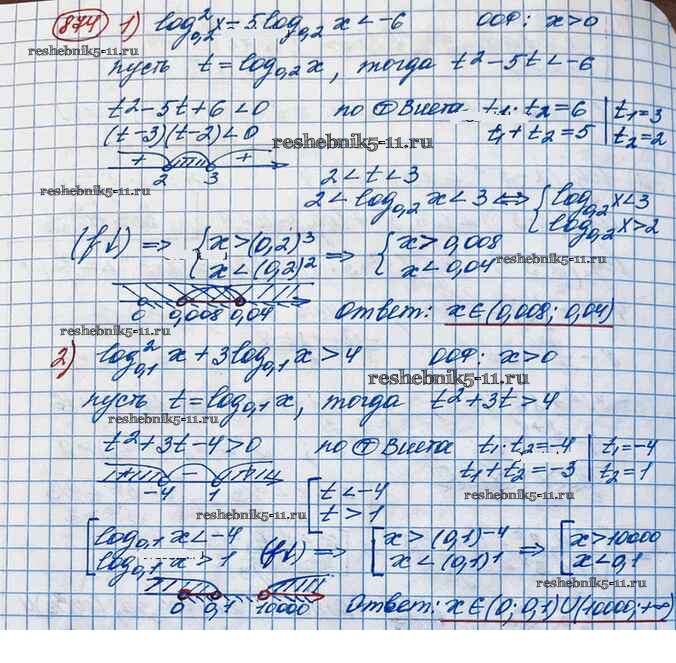 874 1) log²₀,₂ x − 5log₀,₂ x < −6 ООФ: x>0
reshebnik5-11.ru
пусть t = log₀,₂ x, тогда t² − 5t < −6
t² − 5t + 6 < 0 по Т Виета t₁·t₂ = 6 | t₁ = 3
(t−3)(t−2) < 0 t₁ + t₂ = 5 | t₂ = 2
reshebnik5-11.ru
+ +
2 3
2 < t < 3
reshebnik5-11.ru
2 < log₀,₂ x < 3 ⟺ { log₀,₂ x < 3
log₀,₂ x > 2
(f↓) ⟹ { x > (0,2)³ ⟹ { x > 0,008
x < (0,2)² x < 0,04
reshebnik5-11.ru
reshebnik5-11.ru
0 0,008 0,04 Ответ: x∈(0,008; 0,04)
2) log²₀,₁ x + 3log₀,₁ x > 4 ООФ: x>0
reshebnik5-11.ru
пусть t = log₀,₁ x, тогда t² + 3t > 4
reshebnik5-11.ru
t² + 3t − 4 > 0 по Т Виета t₁·t₂ = −4 | t₁ = −4
t₁ + t₂ = −3 | t₂ = 1
+ − +
−4 1
[ t < −4
t > 1
reshebnik5-11.ru
reshebnik5-11.ru
[ log₀,₁ x < −4 (f↓) ⟹ [ x > (0,1)⁻⁴ ⟹ [ x > 10000
log₀,₁ x > 1 x < (0,1)¹ x < 0,1
reshebnik5-11.ru
0 0,1 10000 Ответ: x∈(0; 0,1)∪(10000; +∞)